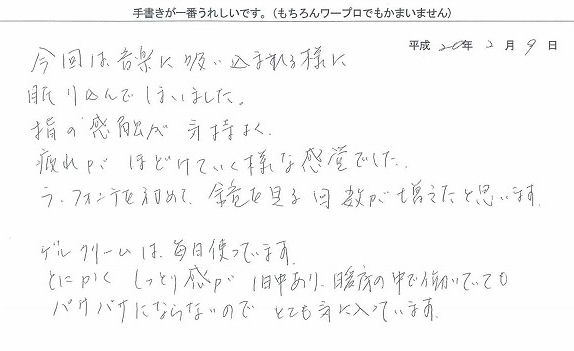 手書きが一番うれしいです。(もちろんワープロでもかまいません)
平成 20年 2月 9日
今回は音楽に吸い込まれる様に
眠り込んでしまいました。
指の感触が気持よく、
疲れが ほどけていく様な感覚でした。
ラ・フォンテを初めて、鏡を見る回数が増えたと思います。
ゲルクリームは、毎日使っています。
とにかく しっとり感が 1日中あり、暖房の中で働いていても
パサパサにならないので とても気に入っています。